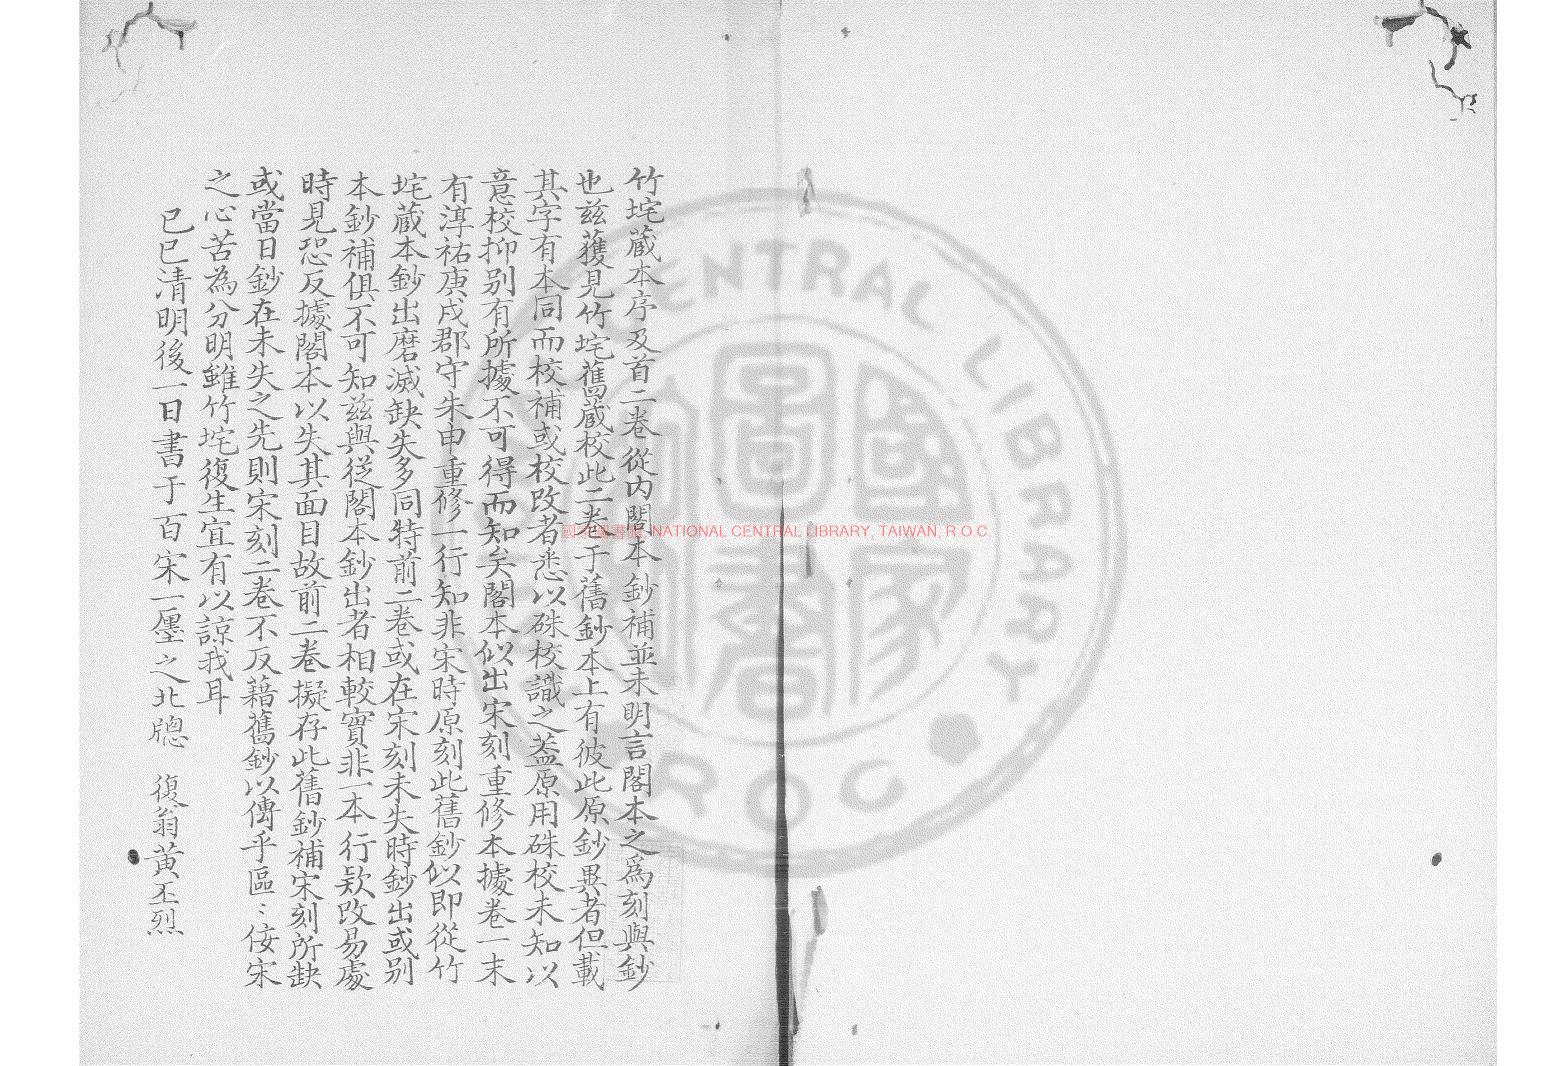 竹垞蔵本序及首二卷從内閣本鈔補並未明言閣本之爲刻與鈔
也兹獲見竹垞舊蔵校此二卷于舊鈔本上有彼此原鈔異者但載
其字有本同而校補或校改者悉以硃校識之盖原用硃校未知以
意校抑别有所據不可得而知矣閣本似出宋刻重修本據卷一末
有淳祐庚戌郡守朱申重修一行知非宋時原刻此舊鈔似即從竹
垞蔵本鈔出磨滅缺失多同特前二卷或在宋刻未失時鈔出或别
本鈔補俱不可知兹與從閣本鈔出者相較實非一本行欵改易處
時見恐反據閣本以失其面目故前二卷擬存此舊鈔補宋刻所缺
或當日鈔在未失之先則宋刻二卷不反藉舊鈔以傳乎區〻佞宋
之心苦為分明雖竹垞復生宜有以諒我耳
己巳清明後一日書于百宋一廛之北牎 復翁黄丕烈
國家圖書館
NATIONAL CENTRAL LIBRARY, TAIWAN, R.O.C.